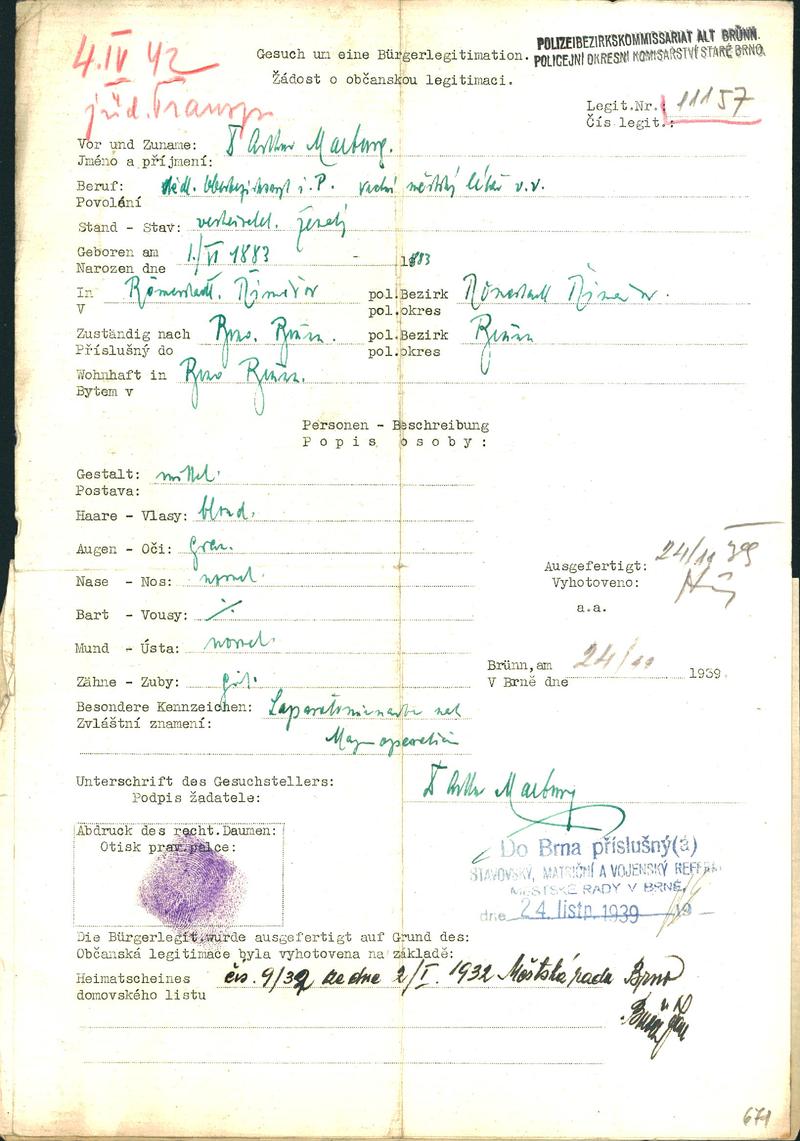 4.IV 42
jüd. Transp.
Gesuch um eine Bürgerlegitimation.
Žádost o občanskou legitimaci.
POLIZEIBEZIRKSKOMMISSARIAT ALT BRÜNN.
POLICEJNÍ OKRESNÍ KOMISAŘSTVÍ STARÉ BRNO.
Legit.Nr.: 11157
Čís legit.:
Vor und Zuname: Dr Arthur Marburg.
Jméno a příjmení:
Beruf: städt. Oberbezirksarzt i.P. vrchní městský lékař v.v.
Povolání
Stand - Stav: verheiratet. ženatý
Geboren am 1./VI 1883 - 1883
Narozen dne
In Römerstadt. Rýmařov pol.Bezirk Römerstadt Rýmařov.
V pol.okres
Zuständig nach Brno. Brünn. pol.Bezirk Brünn
Příslušný do pol.okres
Wohnhaft in Brno Brünn.
Bytem v
Personen - Beschreibung
Popis osoby:
Gestalt: mittel.
Postava:
Haare - Vlasy: blond.
Augen - Oči: grau.
Nase - Nos: normal.
Bart - Vousy: %
Mund - Ústa: normal.
Zähne - Zuby: gut.
Besondere Kennzeichen: Laparatomienarbe nach
Zvláštní znamení: Magenoperation
Ausgefertigt: 24/11 39
Vyhotoveno:
a.a.
Brünn, am 24/11 1939.
V Brně dne
Unterschrift des Gesuchstellers: Dr Arthur Marburg
Podpis žadatele:
Abdruck des recht.Daumen:
Otisk prav.palce:
Do Brna příslušný(á)
STAVOVSKÝ, MATRIČNÍ A VOJENSKÝ REFERÁT
MĚSTSKÉ RADY V BRNĚ,
dne 24. listp. 1939 19
Die Bürgerlegit.wurde ausgefertigt auf Grund des:
Občanská legitimace byla vyhotovena na základě:
Heimatscheines čís. 9/32 ze dne 2/I. 1932 Městská rada Brno
domovského listu
671